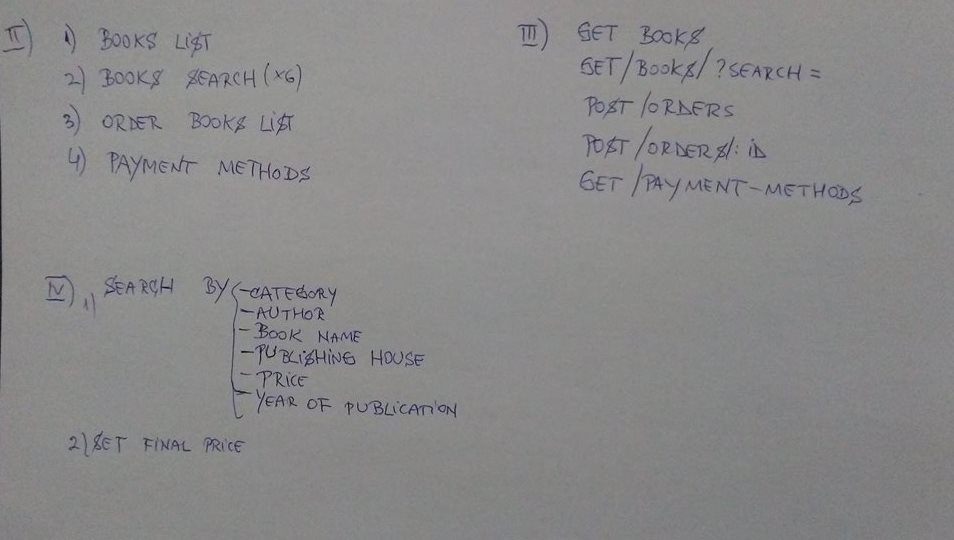 II) 1) BOOKS LIST
2) BOOKS SEARCH (x6)
3) ORDER BOOKS LIST
4) PAYMENT METHODS
III) GET BOOKS
GET/BOOKS/?SEARCH=
POST/ORDERS
POST/ORDERS/:ID
GET/PAYMENT-METHODS
IV) 1) SEARCH BY
-CATEGORY
-AUTHOR
-BOOK NAME
-PUBLISHING HOUSE
-PRICE
-YEAR OF PUBLICATION
2) SET FINAL PRICE